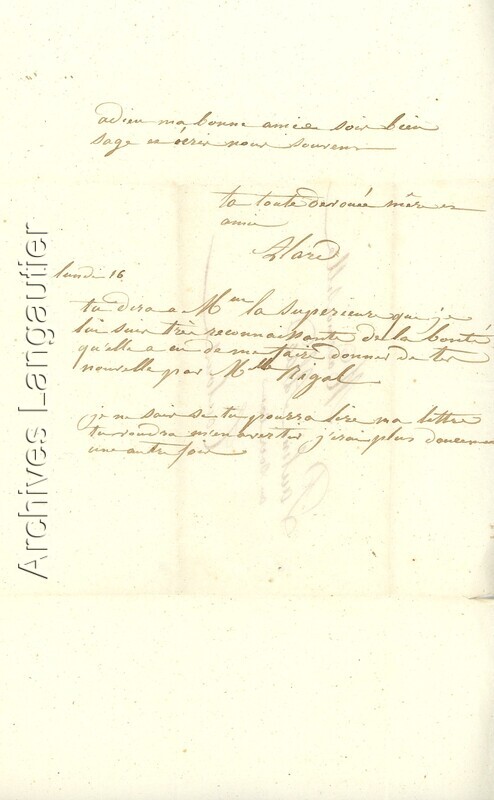 adieu ma bonne amie soir bien
sage et écrir nour souvent
ta toute devouée mère et
amie
Alard
lundi 16
tu dira a Mme la superieure que je
lui suir très reconnaissante de la bonté
qu'elle a eu de me faire donner de ter
nouvelle par Mlle Rigal
je ne sair si tu pourra lire ma lettre
tu voudra m'en avertir j'irai plus doucement
une autre foir
Archives Langautier